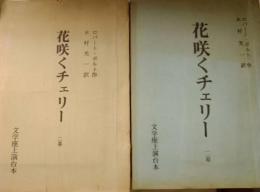 ロバート・ボルト作
木村光一訳
花咲くチェリー
二幕
文学座上演台本
ロバート・ボルト作
木村光一訳
花咲くチェリー
二幕
文学座上演台本